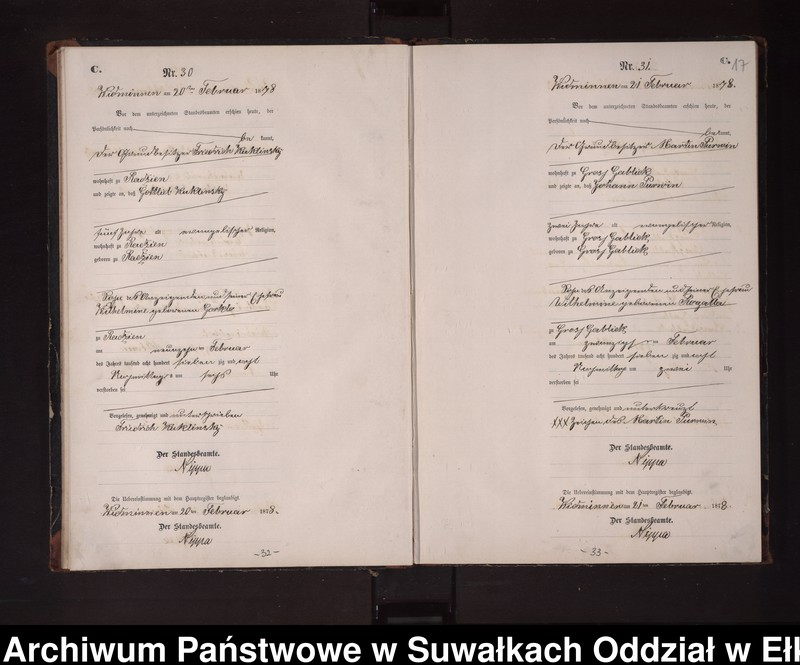 C.
Nr. 30
Widminnen am 20ten Februar 1878
Vor dem unterzeichneten Standesbeamten erschien heute, der
Persönlichkeit nach
be kannt,
der Grundbesitzer Friedrich Kuklinsky
wohnhaft zu Radzien
und zeigte an, daß Gottlieb Kuklinsky
fünf Jahre alt evangelischer Religion,
wohnhaft zu Radzien
geboren zu Radzien
Sohn des Anzeigenden und seiner Ehefrau
Wilhelmine geborenen
zu Radzien
am neunzehn ten Februar
des Jahres tausend acht hundert sieben zig und acht
Nachmittags um sechs Uhr
verstorben sei
Vorgelesen, genehmigt und unterschrieben
Friedrich Kuklinsky
Der Standesbeamte.
Nippa
Die Uebereinstimmung mit dem Hauptregister beglaubigt.
Widminnen am 20ten Februar 1878.
Der Standesbeamte.
Nippa
-32-
C. 17
Nr. 31.
Widminnen am 21 Februar 1878.
Vor dem unterzeichneten Standesbeamten erschien heute, der
Persönlichkeit nach
be kannt,
der Grundbesitzer Martin Purwin
wohnhaft zu Gross Gablick
und zeigte an, daß Johann Purwin
zwei Jahre alt evangelischer Religion,
wohnhaft zu Gross Gablick,
geboren zu Gross Gablick,
Sohn des Anzeigenden und seiner Ehefrau
Wilhelmine geborenen Rogalla
zu Gross Gablick
am zwanzigsten Februar
des Jahres tausend acht hundert sieben zig und acht
Nachmittags um zwei Uhr
verstorben sei
Vorgelesen, genehmigt und unterkreuzt
XXX Zeichen des Martin Purwin,
Der Standesbeamte.
Nippa
Die Uebereinstimmung mit dem Hauptregister beglaubigt.
Widminnen am 21ten Februar 1878.
Der Standesbeamte.
Nippa
-33-
Archiwum Państwowe w Suwałkach Oddział w Ełk